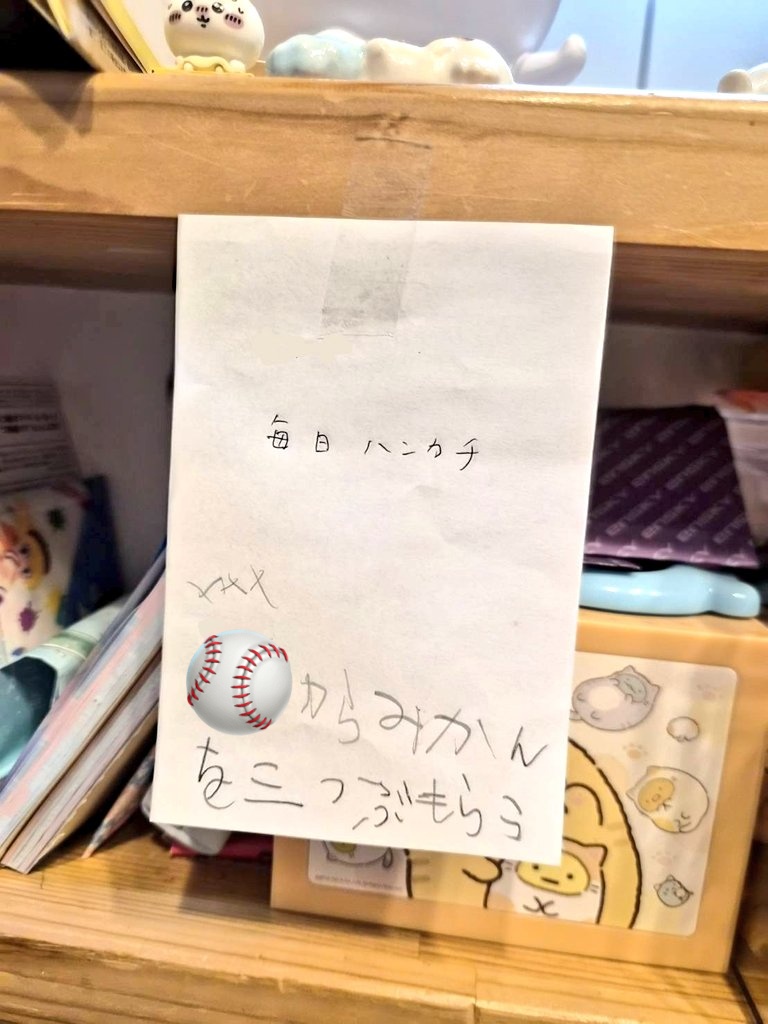 毎日 ハンカチ
からみかん
を三つぶもらう